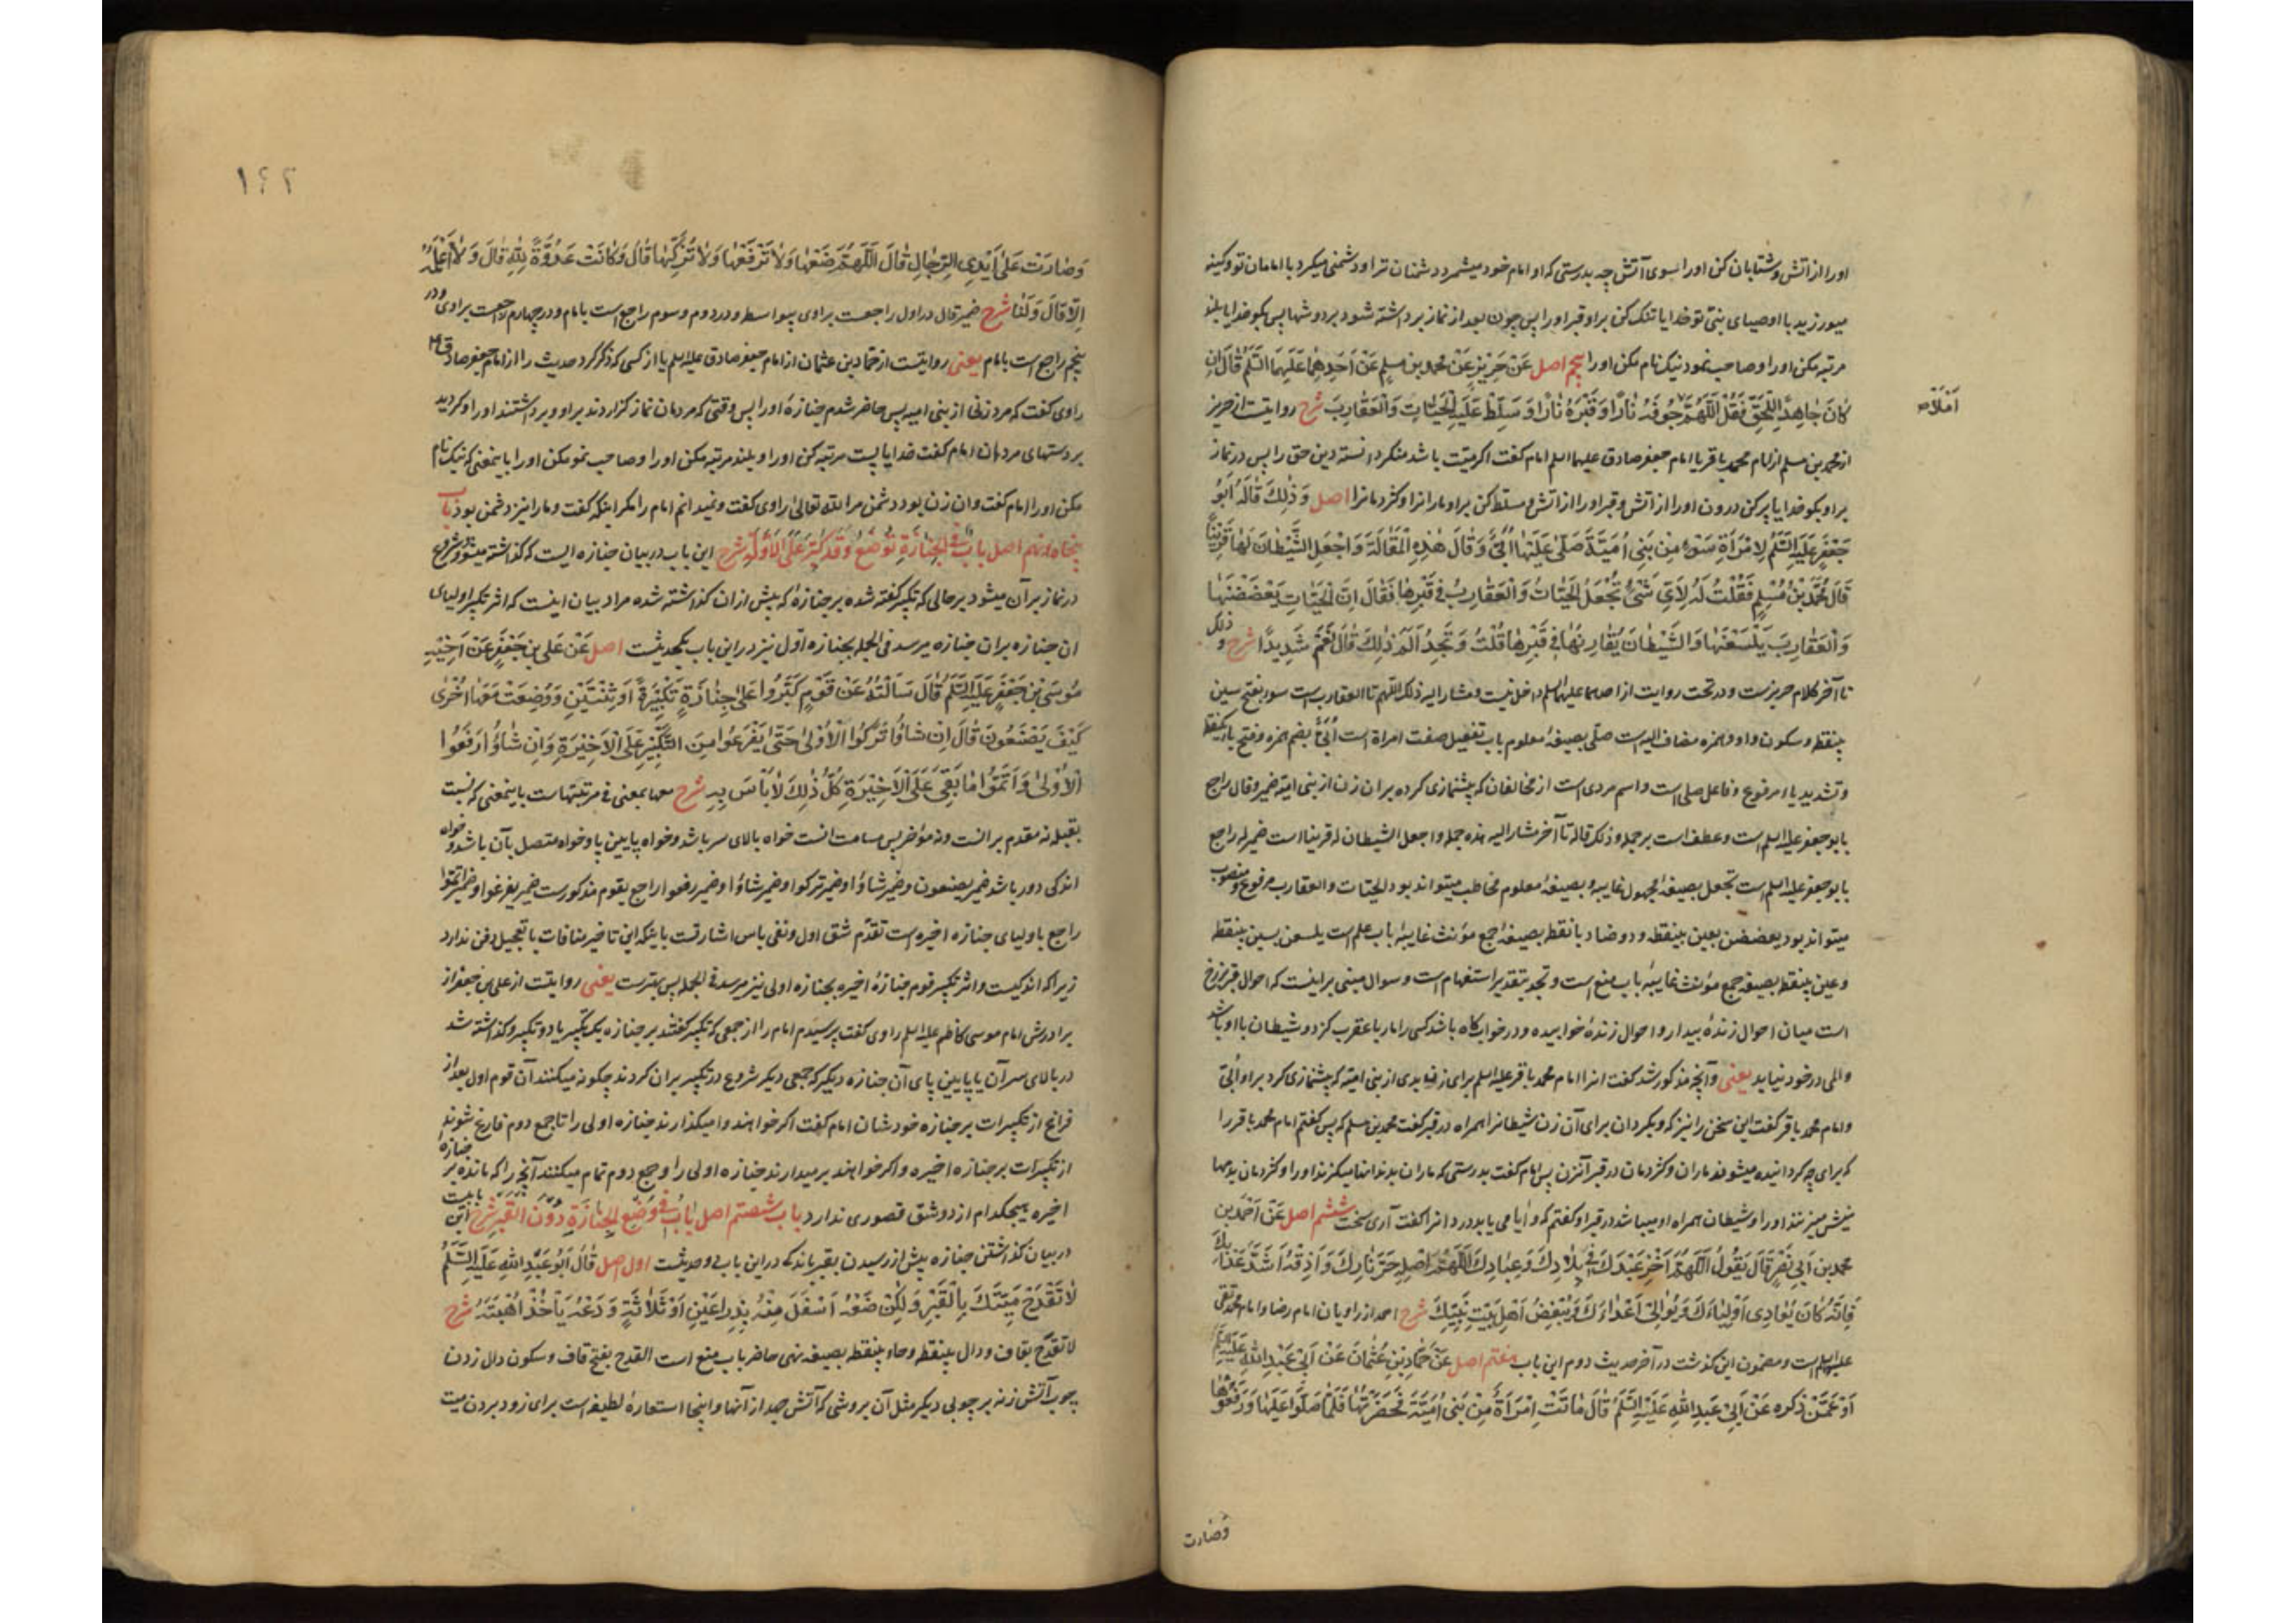 اورا از آتش و شتابان کن اورا بسوی آتش چه بدرستی که او امام خود میشمرد دشمنان ترا و دشمنی میکرد با امامان تو و کینه
میورزید با اوصیای بنی تو خدایا تنک کن براو قبر اورا پس چون بعد از نماز برداشته شود بر دوشها پس بکو خدایا بلند
مرتبه مکن اورا و صاحب نمو د نیک نام مکن اورا پنجم اصل عَنْ حَرِيزٍ عَنْ محمد بن مسلم عَنْ اَحَدِهِمَا عَلَيْهِمَا السَّلَمُ قَالَ اِنْ
كَانَ جَاحِدًا لِلْحَقِّ فَقُلْ اَللّٰهُمَّ جَوْفَهُ نَارًا وَقَبْرَهُ نَارًا وَسَلِّطْ عَلَيْهِ الْحَيَّاتِ وَالْعَقَارِبَ شرح روایتست از حریز
اَمْلَأْ ص
از محمد بن مسلم از امام محمد باقر یا امام جعفر صادق علیهما السلم امام کفت اکر میّت باشد منکر دانسته دین حق را پس در نماز
براو بکو خدایا پر کن درون اورا از آتش و قبر اورا از آتش و مسلط کن براو مارانرا و کژدمانرا اصل وَذٰلِكَ قَالَهُ اَبُو
جَعْفَرٍ عَلَيْهِ السَّلَمُ لِامْرَأَةِ سَوْءٍ مِنْ بَنِي اُمَيَّةَ صَلّٰى عَلَيْهَا اُبَيٌّ وَقَالَ هٰذِهِ الْمَقَالَةَ وَاجْعَلِ الشَّيْطَانَ لَهَا قَرِينًا
قَالَ مُحَمَّدُ بْنُ مُسْلِمٍ فَقُلْتُ لَهُ لِاَيِّ شَيْءٍ تُجْعَلُ الْحَيَّاتُ وَالْعَقَارِبُ فِي قَبْرِهَا فَقَالَ اِنَّ الْحَيَّاتِ يَعْضَضْنَهَا
وَالْعَقَارِبَ يَلْسَعْنَهَا وَالشَّيْطَانَ يُقَارِنُهَا فِي قَبْرِهَا قُلْتُ وَتَجِدُ اَلَمَ ذٰلِكَ قَالَ نَعَمْ شَدِيدًا شرح و ذلک
تا آخر کلام حریزست و در تحت روایت از احدهما علیهما السلم داخل نیست و مشار الیه ذلک اللهم تا العقارب است سوء بفتح سین
بینقطه و سکون واو و همزه مضاف الیه است صلّی بصیغهٔ معلوم باب تفعیل صفت امرأة است اُبَیّ بضم همزه و فتح باء یکنقطه
و تشدید یاء مرفوع و فاعل صلی است و اسم مردی است از مخالفان که پیشنمازی کرده بر ان زن از بنی امیّه ضمیر و قال راجع
بابو جعفر علیه السلم است و عطف است بر جمله و ذلک قاله تا آخر مشار الیه هذه جمله و اجعل الشیطان له قرینا است ضمیر له راجع
بابو جعفر علیه السلم است تجعل بصیغهٔ مجهول غایبه و بصیغهٔ معلوم مخاطب میتواند بود الحیّات و العقارب مرفوع و منصوب
میتواند بود یعضضن بعین بینقطه و دو ضاد با نقطه بصیغهٔ جمع مؤنث غایبهٔ باب علم است یلسعن بسین بینقطه
و عین بینقطه بصیغه جمع مؤنث غایبهٔ باب منع است و تجد بتقدیر استفهام است و سوال مبنی بر اینست که احوال قبر برزخ
است میان احوال زندهٔ بیدار و احوال زندهٔ خوابیده و در خواب کاه باشد کسی را مار یا عقرب کزد و شیطان با او باشد
و المی در خود نیابد یعنی و آنچه مذکور شد کفت انرا امام محمد باقر علیه السلم برای زن بدی از بنی امیّه که پیشنمازی کرد براو اُبَیّ
و امام محمد باقر کفت این سخن را نیز که و بکردان برای آن زن شیطانرا همراه در قبر کفت محمد بن مسلم که پس کفتم امام محمد باقر را
که برای چه کردانیده میشوند ماران و کژدمان در قبر آنزن پس امام کفت بدرستی که ماران بدندانها میکزند اورا و کژدمان بدمها
نیش میزنند اورا و شیطان همراه او میباشد در قبر او کفتم که و ایا می یابد درد انرا کفت آری سخت ششم اصل عَنْ اَحْمَدَ بن
محمد بن اَبِي نَصْرٍ قَالَ يَقُولُ اَللّٰهُمَّ اَخْزِ عَبْدَكَ فِي بِلَادِكَ وَعِبَادِكَ اَللّٰهُمَّ اَصْلِهِ حَرَّ نَارِكَ وَاَذِقْهُ اَشَدَّ عَذَابِكَ
فَاِنَّهُ كَانَ يُعَادِي اَوْلِيَاءَكَ وَيُوَالِي اَعْدَاءَكَ وَيُبْغِضُ اَهْلَ بَيْتِ نَبِيِّكَ شرح احمد از راویان امام رضا و امام محمد تقی
علیهما السلم است و مضمون این کذشت در آخر حدیث دوم این باب هفتم اصل عَنْ حَمَّادِ بْنِ عُثْمَانَ عَنْ اَبِي عَبْدِ اللهِ عَلَيْهِ السَّلَمُ
اَوْ عَمَّنْ ذكره عَنْ اَبِي عَبْدِ اللهِ عَلَيْهِ السَّلَمُ قَالَ مَاتَتِ امْرَأَةٌ مِنْ بَنِي اُمَيَّةَ فَحَضَرْتُهَا فَلَمَّا صَلَّوْا عَلَيْهَا وَرَفَعُوهَا
وَصَارَت
١٢٢
وَصَارَتْ عَلٰى اَيْدِي الرِّجَالِ قَالَ اَللّٰهُمَّ ضَعْهَا وَلَا تَرْفَعْهَا وَلَا تُزَكِّهَا قَالَ وَكَانَتْ عَدُوَّةً لِلّٰهِ قَالَ وَلَا اَعْلَمُهُ
اِلَّا قَالَ وَلَنَا شرح ضمیر قال در اول راجعست براوی بیواسطه و در دوم و سوم راجع است بامام و در چهارم راجعست براوی و در
پنجم راجع است بامام یعنی روایتست از حمّاد بن عثمان از امام جعفر صادق علیه السلم یا از کسی که ذکر کرد حدیث را از امام جعفر صادق ع
راوی کفت که مرد زنی از بنی امیه پس حاضر شدم جنازهٔ اورا پس وقتی که مردمان نماز کزاردند براو و برداشتند اورا و کردید
بر دستهای مردمان امام کفت خدایا پست مرتبه کن اورا و بلند مرتبه مکن اورا و صاحب نمو مکن اورا باینمعنی که نیک نام
مکن اورا امام کفت و ان زن بود دشمن مر الله تعالی را راوی کفت و نمیدانم امام را مکر اینکه کفت و مارا نیز دشمن بود باب
پنجاه و نهم اصل بَابٌ فِي الْجَنَازَةِ تُوضَعُ وَقَدْ كُبِّرَ عَلَى الْاَوَّلَةِ شرح این باب در بیان جنازه ایست که کذاشته میشود و شروع
در نماز بر آن میشود بر حالی که تکبیر کفته شده بر جنازهٔ که پیش از ان کذاشته شده مراد بیان اینست که اثر تکبیر اولیای
ان جنازه بر ان جنازه میرسد فی الجمله بجنازه اوّل نیز در این باب یکحدیثست اصل عَنْ عَلِيِّ بْنِ جَعْفَرٍ عَنْ اَخِيْهِ
مُوسَى بْنِ جَعْفَرٍ عَلَيْهِ السَّلَمُ قَالَ سَاَلْتُهُ عَنْ قَوْمٍ كَبَّرُوا عَلٰى جِنَازَةٍ تَكْبِيرَةً اَوْ ثِنْتَيْنِ وَوُضِعَتْ مَعَهَا اُخْرٰى
كَيْفَ يَصْنَعُونَ قَالَ اِنْ شَاؤُا تَرَكُوا الْاُولٰى حَتّٰى يَفْرَغُوا مِنَ التَّكْبِيرِ عَلَى الْاَخِيرَةِ وَاِنْ شَاؤُا رَفَعُوا
الْاُولٰى وَاَتَمُّوا مَا بَقِيَ عَلَى الْاَخِيْرَةِ كُلُّ ذٰلِكَ لَا بَأْسَ بِهِ شرح معها بمعنی فی مرتبتها است باینمعنی که نسبت
بقبله نه مقدم بر انست و نه مؤخر پس مسامت انست خواه بالای سر باشد و خواه پایین پا و خواه متصل بآن باشد و خواه
اندکی دور باشد ضمیر یصنعون و ضمیر شاؤا و ضمیر ترکوا و ضمیر شاؤا و ضمیر رفعوا راجع بقوم مذکورست ضمیر یفرغوا و ضمیر اتمّوا
راجع باولیای جنازه اخیره است تقدّم شق اول و نفی باس اشارتست باینکه این تاخیر منافات با تعجیل دفن ندارد
زیرا که اندکیست و اثر تکبیر قوم جنازهٔ اخیره بجنازه اولی نیز میرسد فی الجمله پس بهترست یعنی روایتست از علی بن جعفر از
برادرش امام موسی کاظم علیه السلم راوی کفت پرسیدم امام را از جمعی که تکبیر کفتند بر جنازه یک تکبیر یا دو تکبیر و کذاشته شد
در بالای سر آن یا پایین پای آن جنازه دیکر که جمعی دیکر شروع در تکبیر بر ان کردند چکونه میکنند آن قوم اول بعد از
فراغ از تکبیرات بر جنازه خودشان امام کفت اکر خواهند وا میکذارند جنازه اولی را تا جمع دوم فارغ شوند
از تکبیرات بر جنازه اخیره و اکر خواهند بر میدارند جنازه اولی را و جمع دوم تمام میکنند آنچه را که مانده بر جنازهٔ
اخیره هیچکدام از دو شق قصوری ندارد باب شصتم اصل بَابٌ فِي وَضْعِ الْجَنَازَةِ دُونَ الْقَبْرِ شرح این بابیست
در بیان کذاشتن جنازه پیش از رسیدن بقبر باندکی در این باب دو حدیثست اول اصل قَالَ اَبُو عَبْدِ اللهِ عَلَيْهِ السَّلَمُ
لَا تَقْدَحْ مَيِّتَكَ بِالْقَبْرِ وَلٰكِنْ ضَعْهُ اَسْفَلَ مِنْهُ بِذِرَاعَيْنِ اَوْ ثَلَاثَةٍ وَدَعْهُ يَأْخُذْ اُهْبَتَهُ شرح
لا تقدح بقاف و دال بینقطه و حاء بینقطه بصیغه نهی حاضر باب منع است القدح بفتح قاف و سکون دال زدن
چوب آتش زنه بر چوبی دیکر مثل آن بروشی که آتش جهد از آنها و اینجا استعارهٔ لطیفه است برای زود بردن میت